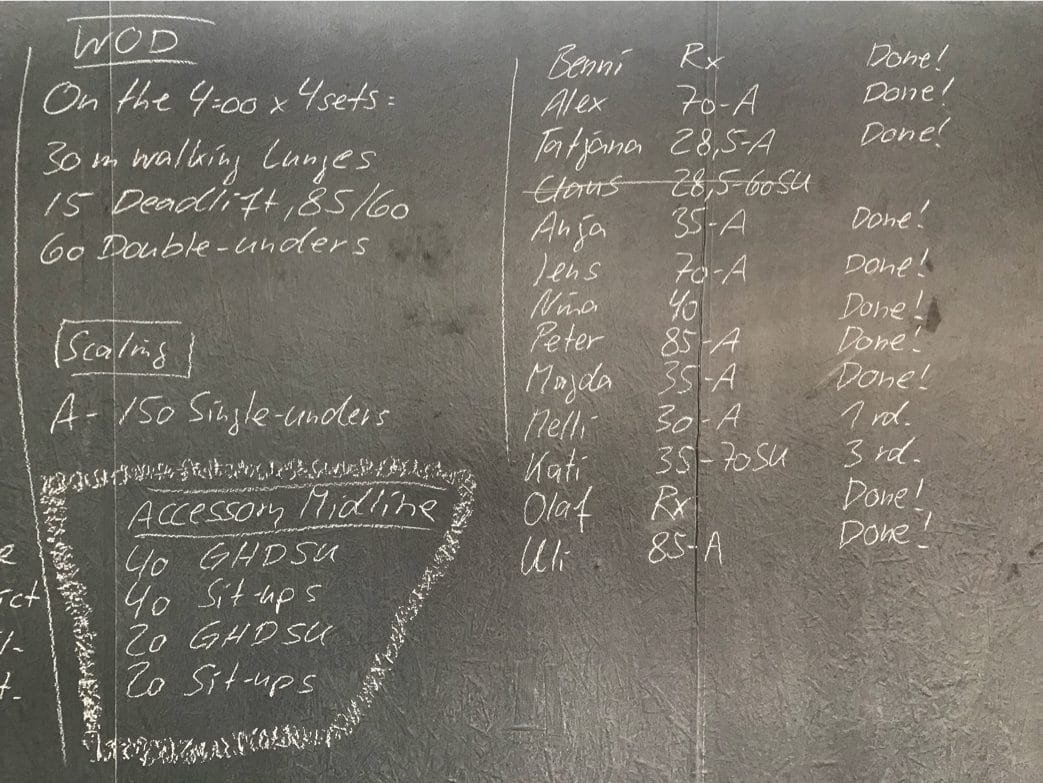 WOD
On the 4:00 x 4sets:
30 m walking Lunges
15 Deadlift, 85/60
60 Double-unders
Scaling
A - 150 Single-unders
Accessory Midline
40 GHDSU
40 Sit-ups
20 GHDSU
20 Sit-ups
Benni Rx Done!
Alex 70-A Done!
Tatjana 28,5-A Done!
Claus 28,5-60SU
Anja 35-A Done!
Jens 70-A Done!
Nina 40 Done!
Peter 85-A Done!
Magda 35-A Done!
Melli 30-A 1 rd.
Kati 35-70SU 3 rd.
Olaf Rx Done!
Uli 85-A Done!